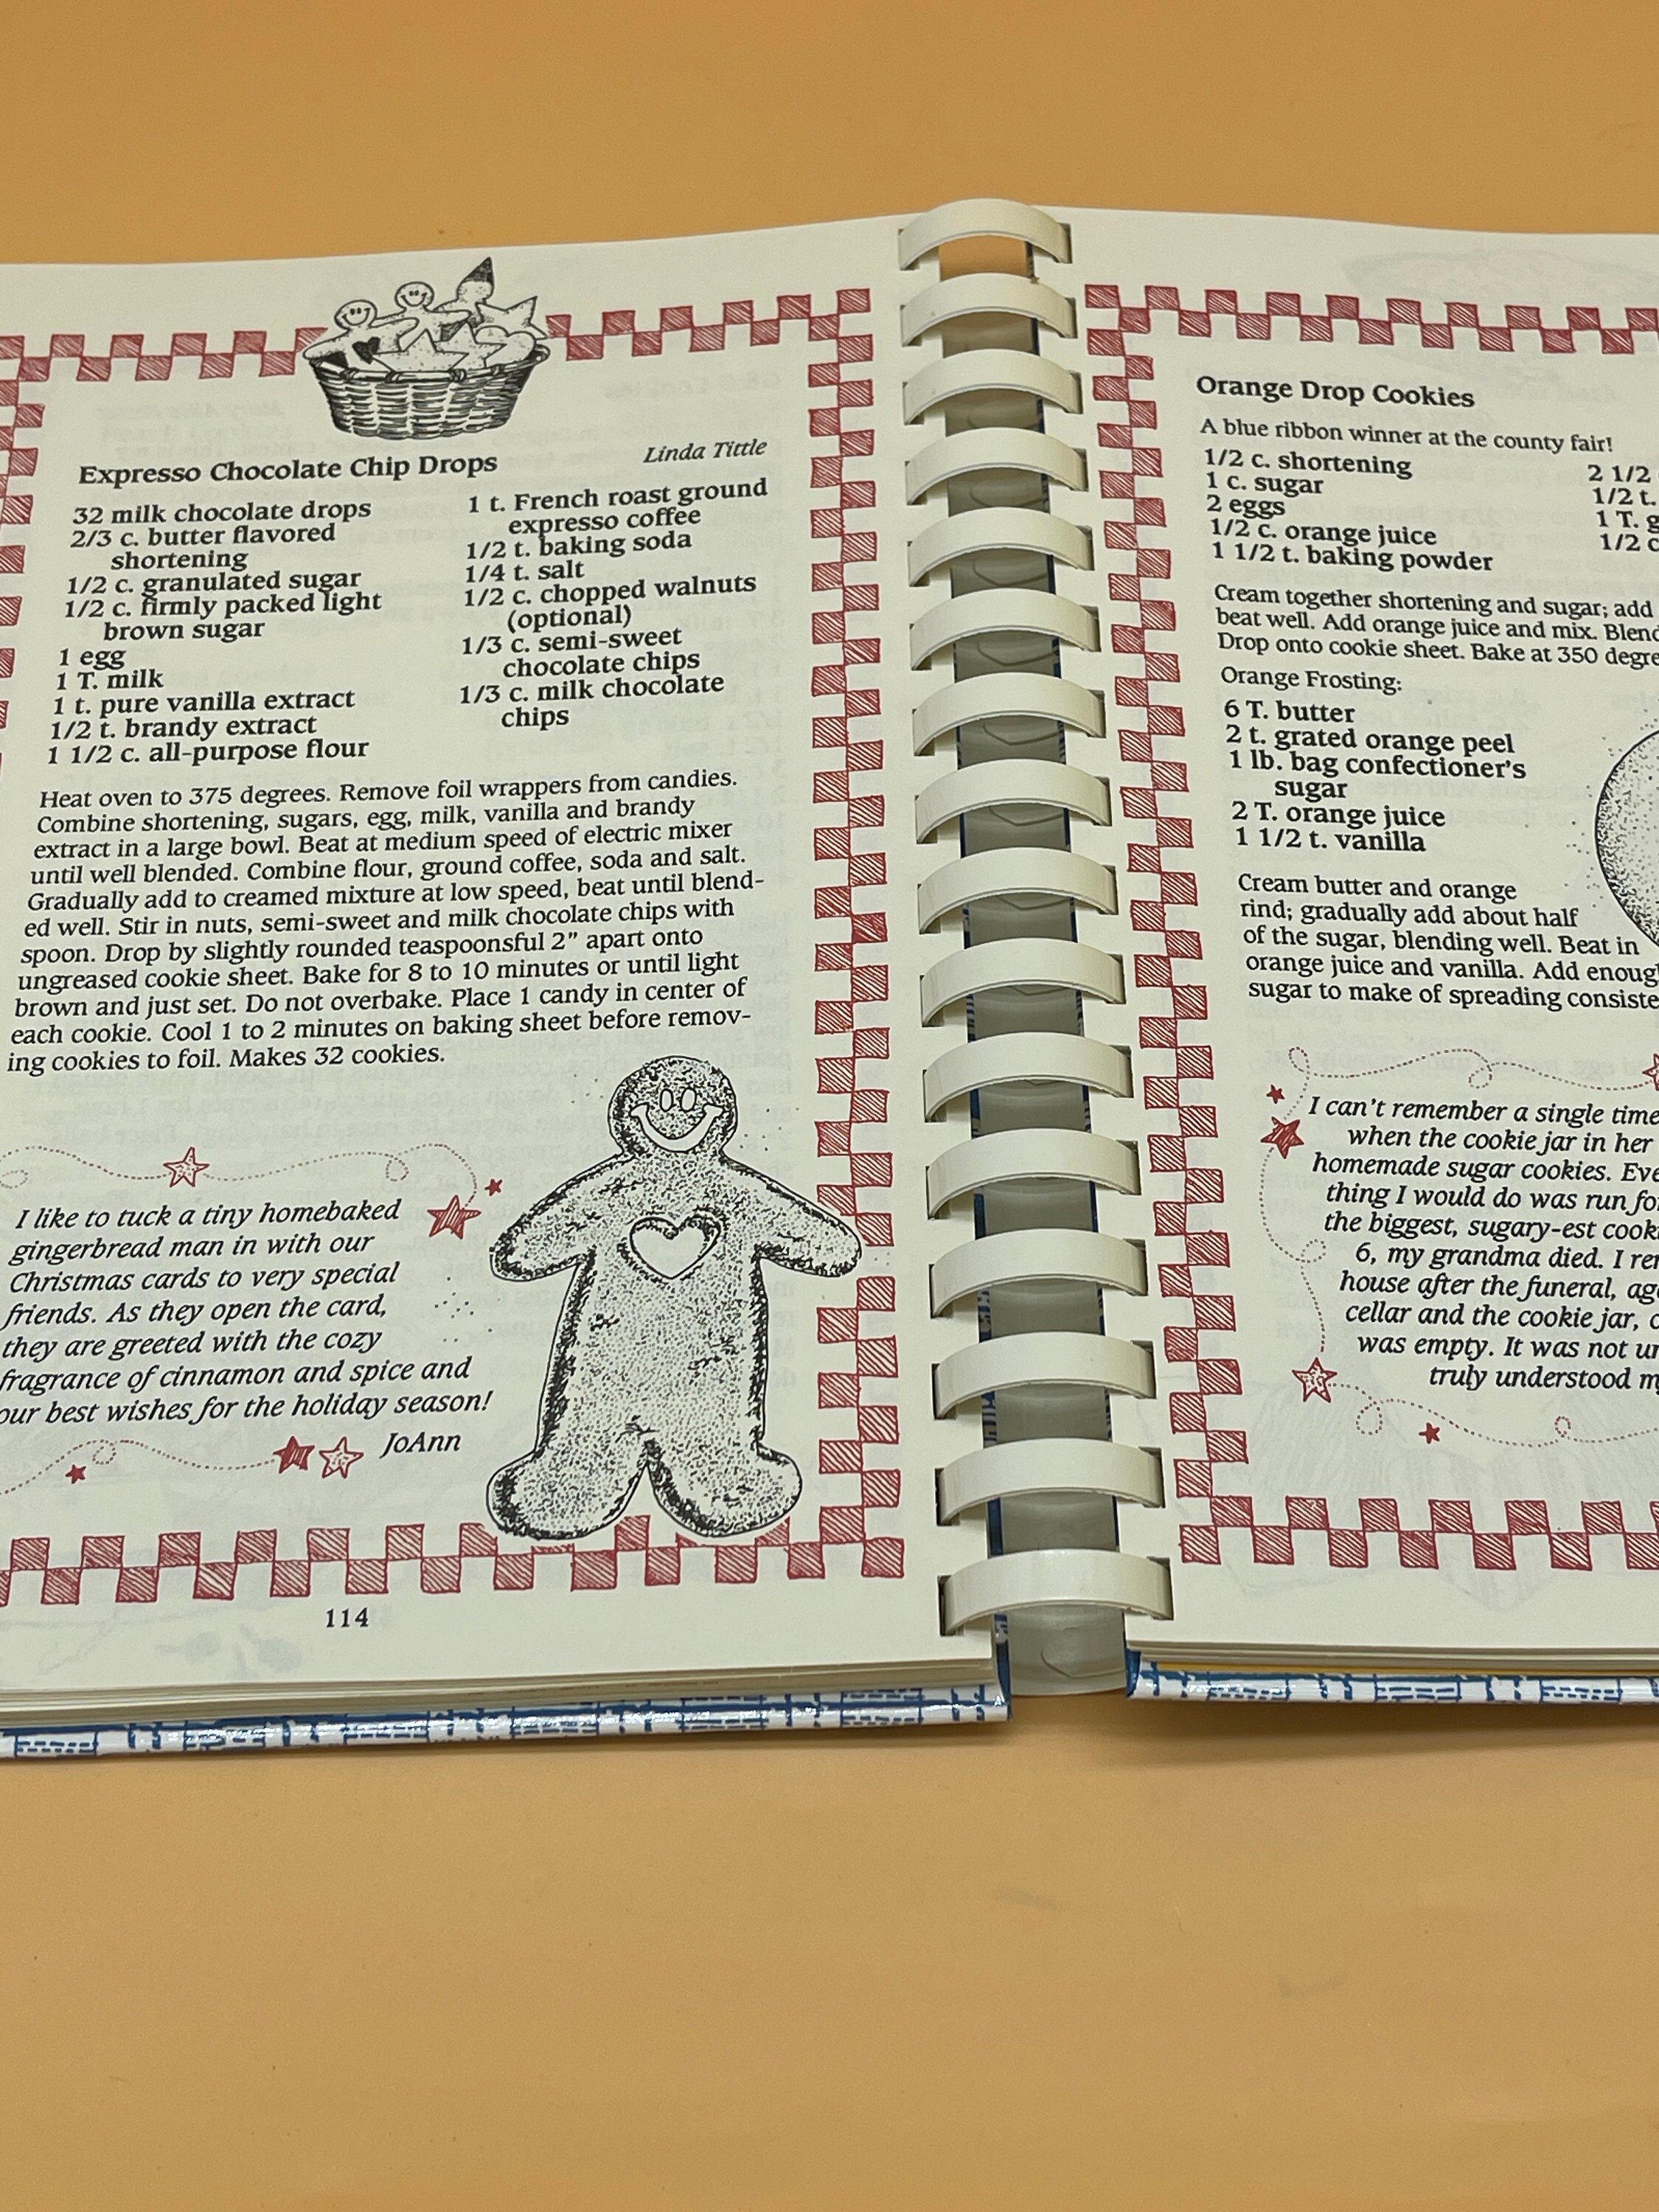 Expresso Chocolate Chip Drops
Linda Tittle
32 milk chocolate drops
2/3 c. butter flavored
shortening
1/2 c. granulated sugar
1/2 c. firmly packed light
brown sugar
1 egg
1 T. milk
1 t. pure vanilla extract
1/2 t. brandy extract
1 1/2 c. all-purpose flour
1 t. French roast ground
expresso coffee
1/2 t. baking soda
1/4 t. salt
1/2 c. chopped walnuts
(optional)
1/3 c. semi-sweet
chocolate chips
1/3 c. milk chocolate
chips
Heat oven to 375 degrees. Remove foil wrappers from candies.
Combine shortening, sugars, egg, milk, vanilla and brandy
extract in a large bowl. Beat at medium speed of electric mixer
until well blended. Combine flour, ground coffee, soda and salt.
Gradually add to creamed mixture at low speed, beat until blend-
ed well. Stir in nuts, semi-sweet and milk chocolate chips with
spoon. Drop by slightly rounded teaspoonsful 2" apart onto
ungreased cookie sheet. Bake for 8 to 10 minutes or until light
brown and just set. Do not overbake. Place 1 candy in center of
each cookie. Cool 1 to 2 minutes on baking sheet before remov-
ing cookies to foil. Makes 32 cookies.
I like to tuck a tiny homebaked
gingerbread man in with our
Christmas cards to very special
friends. As they open the card,
they are greeted with the cozy
fragrance of cinnamon and spice and
our best wishes for the holiday season!
JoAnn
114
Orange Drop Cookies
A blue ribbon winner at the county fair!
1/2 c. shortening
1 c. sugar
2 eggs
1/2 c. orange juice
1 1/2 t. baking powder
2 1/2
1/2 t.
1 T. g
1/2 c
Cream together shortening and sugar; add
beat well. Add orange juice and mix. Blend
Drop onto cookie sheet. Bake at 350 degre
Orange Frosting:
6 T. butter
2 t. grated orange peel
1 lb. bag confectioner's
sugar
2 T. orange juice
1 1/2 t. vanilla
Cream butter and orange
rind; gradually add about half
of the sugar, blending well. Beat in
orange juice and vanilla. Add enoug
sugar to make of spreading consiste
I can't remember a single time
when the cookie jar in her
homemade sugar cookies. Eve
thing I would do was run fo
the biggest, sugary-est cook
6, my grandma died. I re
house after the funeral, ag
cellar and the cookie jar,
was empty. It was not un
truly understood m